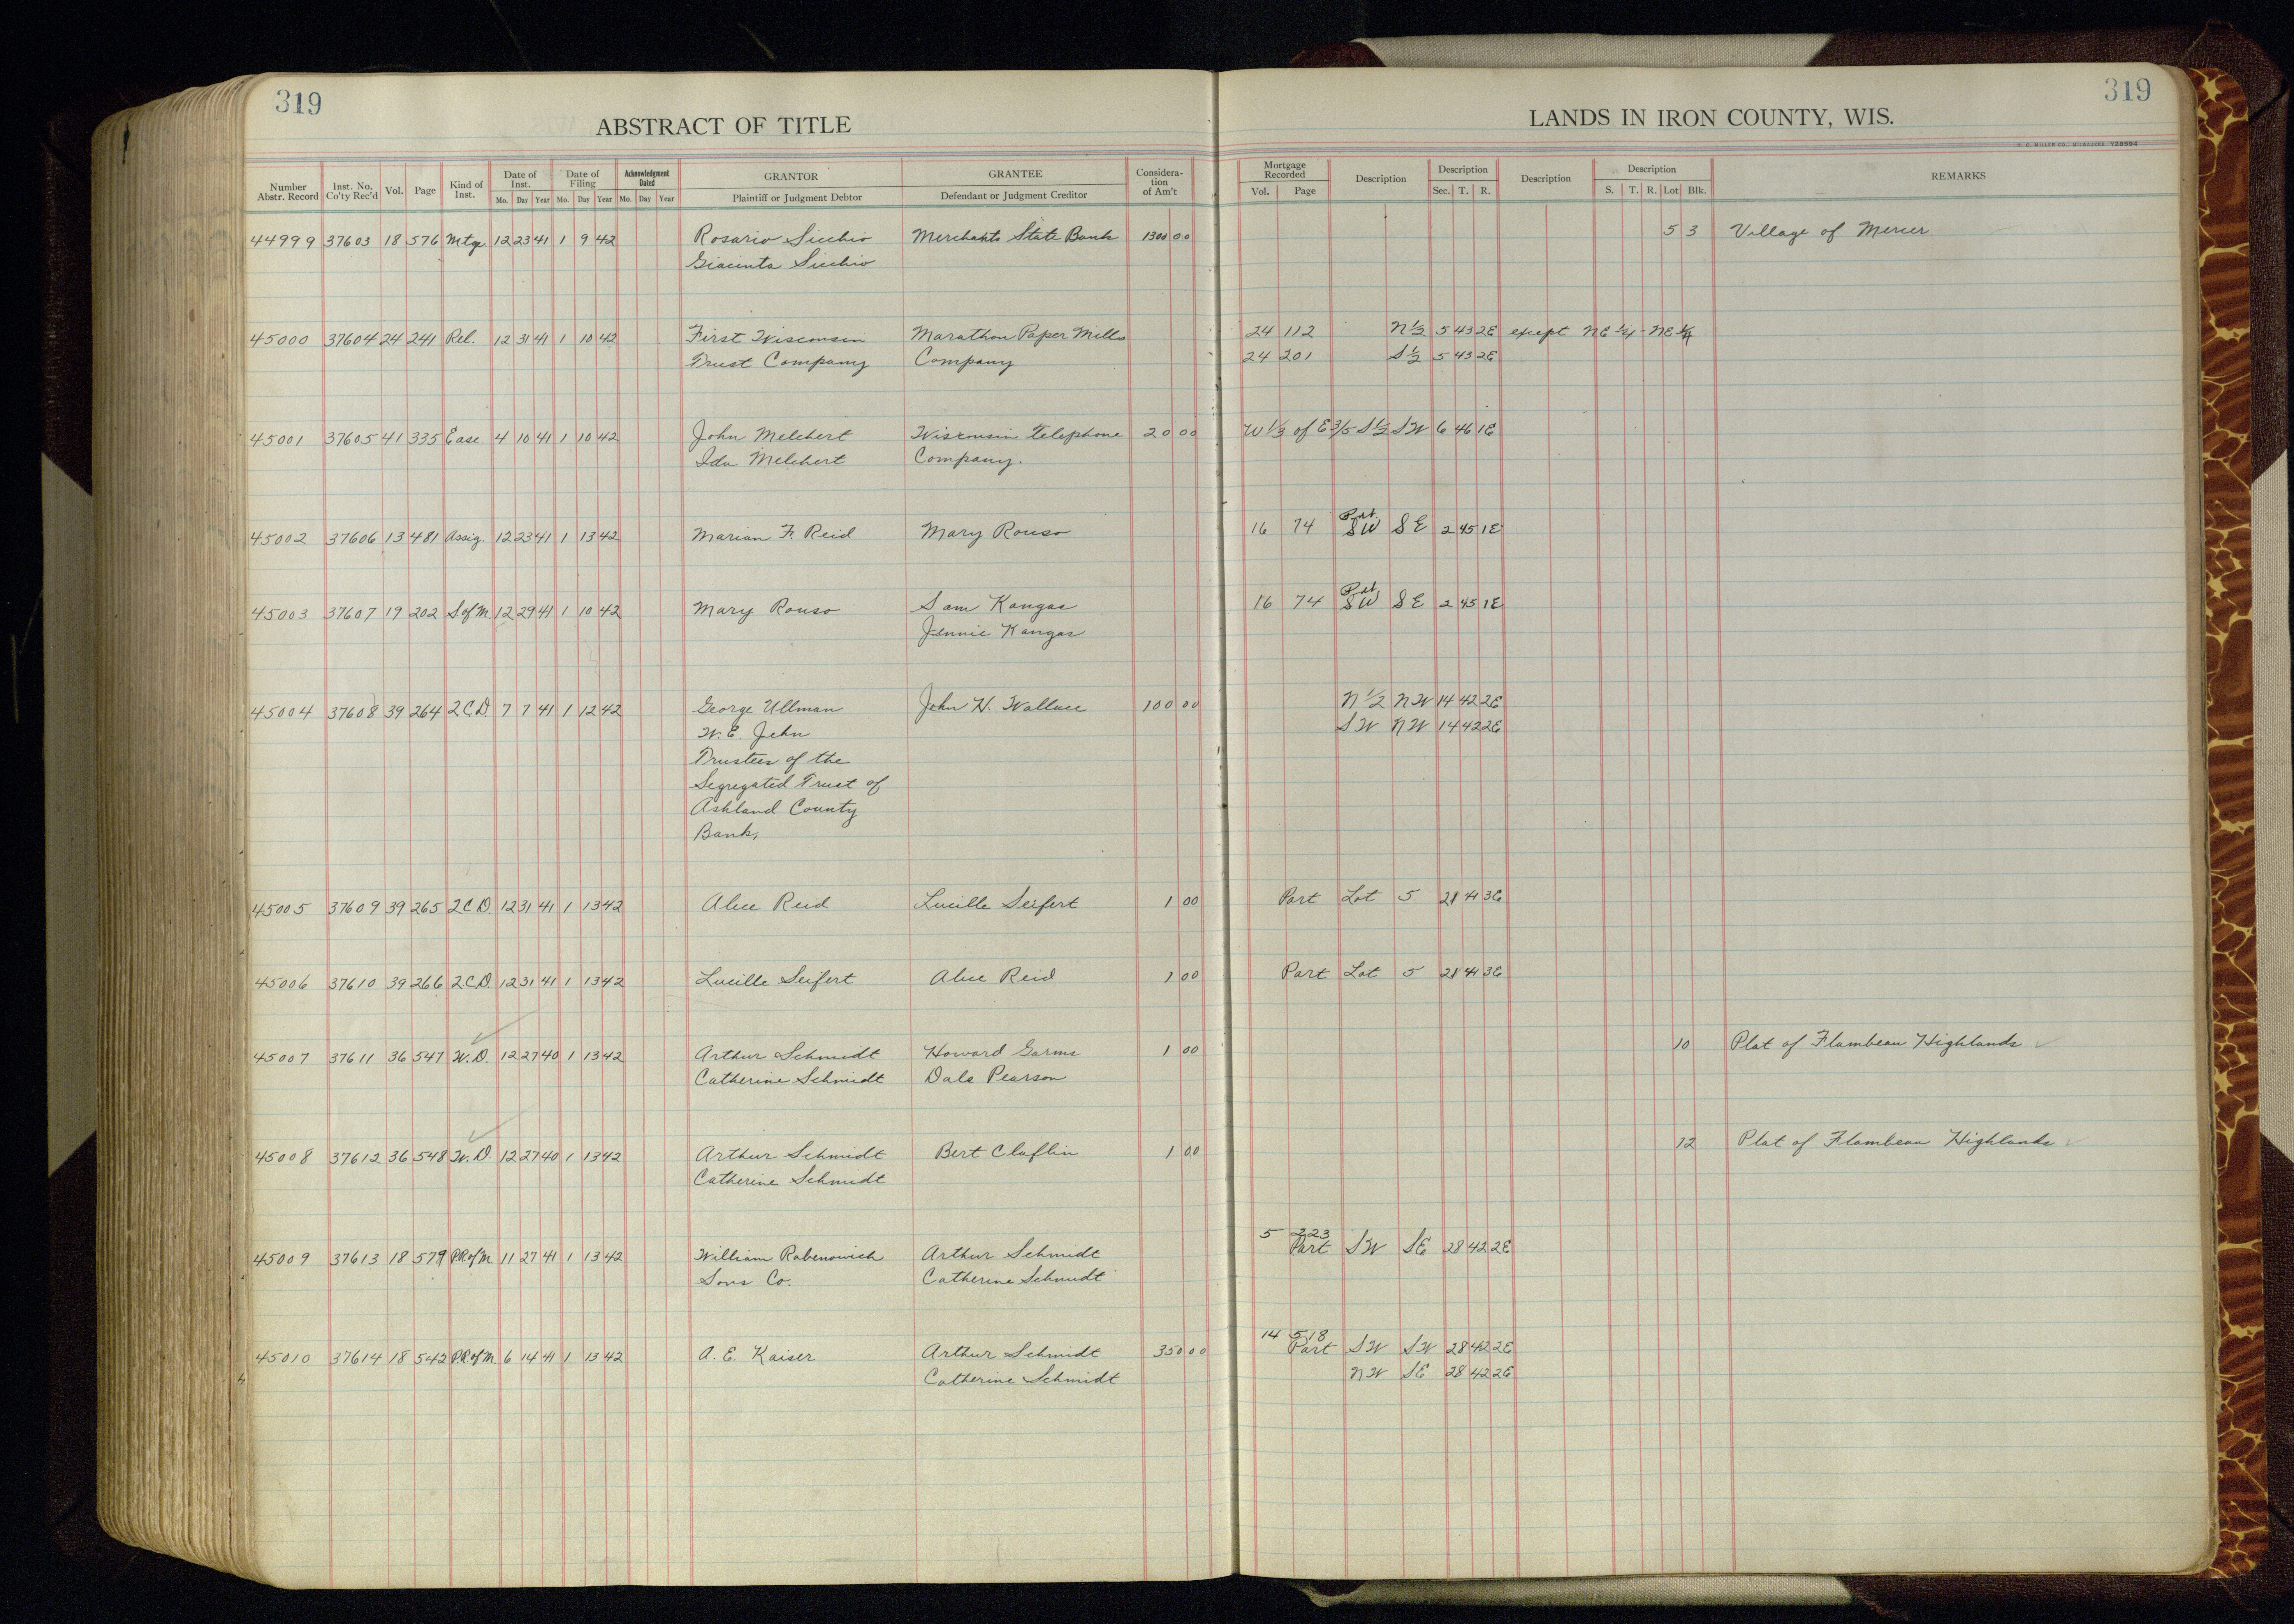 319
ABSTRACT OF TITLE
Number Abstr. Record
Inst. No. Co'ty Rec'd
Vol.
Page
Kind of Inst.
Date of Inst.
Mo. Day Year
Date of Filing
Mo. Day Year
Acknowledgment Dated
Mo. Day Year
GRANTOR
Plaintiff or Judgment Debtor
GRANTEE
Defendant or Judgment Creditor
Considera-
tion
of Am't
319
LANDS IN IRON COUNTY, WIS.
H. C. MILLER CO., MILWAUKEE Y28594
Mortgage Recorded
Vol. Page
Description
Description
Sec. T. R.
Description
Description
S. T. R. Lot Blk.
REMARKS
44999 37603 18 576 Mtge. 12 23 41 1 9 42 Rosario Sicchio Merchants State Bank 1300 00 5 3 Village of Mercer
Giacinta Sicchio
45000 37604 24 241 Rel. 12 31 41 1 10 42 First Wisconsin Marathon Paper Mills 24 112 N 1/2 5 43 2E except NE 1/4 - NE 1/4
Trust Company Company 24 201 S 1/2 5 43 2E
45001 37605 41 335 Ease 4 10 41 1 10 42 John Melchert Wisconsin Telephone 20 00 W 1/3 of E 3/5 S 1/2 SW 6 46 1E
Ida Melchert Company.
45002 37606 13 481 Assig. 12 23 41 1 13 42 Marian F. Reid Mary Rouso 16 74 Part SW SE 2 45 1E
45003 37607 19 202 S.of M. 12 29 41 1 10 42 Mary Rouso Sam Kangas 16 74 Part SW SE 2 45 1E
Jennie Kangas
45004 37608 39 264 2.C.D. 7 7 41 1 12 42 George Ullman John H. Wallace 100 00 N 1/2 NW 14 42 2E
W. E. John SW NW 14 42 2E
Trustees of the
Segregated Trust of
Ashland County
Bank,
45005 37609 39 265 2.C.D. 12 31 41 1 13 42 Alice Reid Lucille Seifert 1 00 Part Lot 5 28 41 3E
45006 37610 39 266 2.C.D. 12 31 41 1 13 42 Lucille Seifert Alice Reid 1 00 Part Lot 5 28 41 3E
45007 37611 36 547 W.D. 12 27 40 1 13 42 Arthur Schmidt Howard Garms 1 00 10 Plat of Flambeau Highlands
Catherine Schmidt Dale Pearson
45008 37612 36 548 W.D. 12 27 40 1 13 42 Arthur Schmidt Bert Claflin 1 00 12 Plat of Flambeau Highlands
Catherine Schmidt
5 223
45009 37613 18 579 P.R.of M. 11 27 41 1 13 42 William Rabenowich Arthur Schmidt Part SW SE 28 42 2E
Sons Co. Catherine Schmidt
14 518
45010 37614 18 542 P.R.of M. 6 14 41 1 13 42 A. E. Kaiser Arthur Schmidt 350 00 Part SW SW 28 42 2E
Catherine Schmidt NW SE 28 42 2E